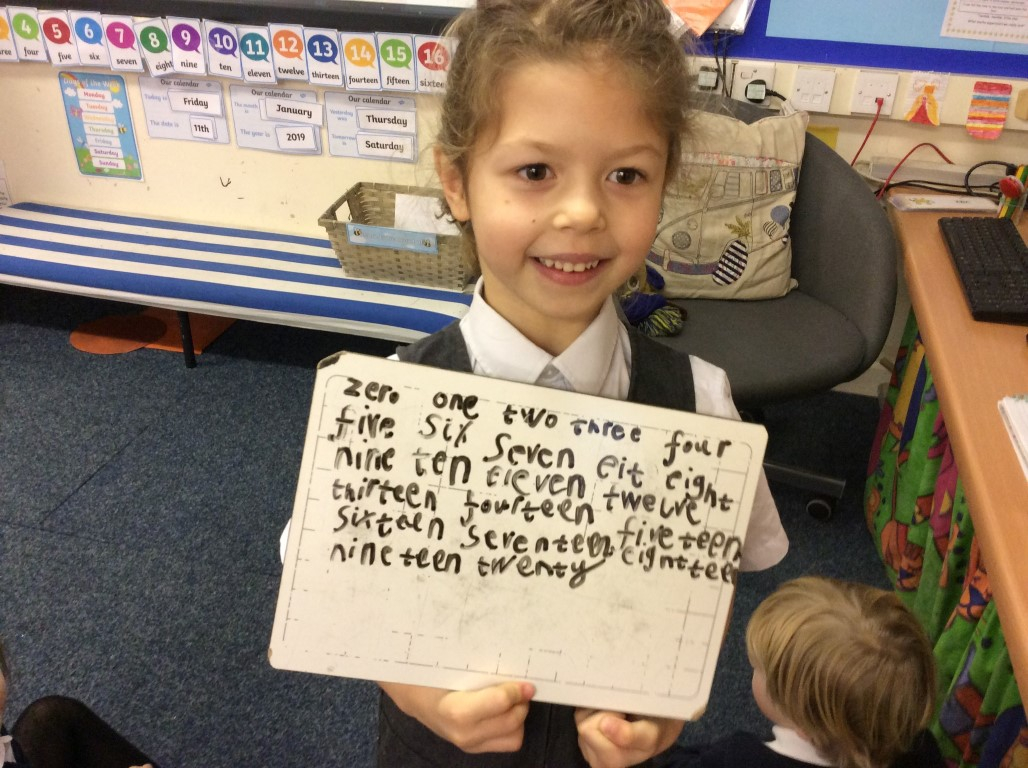 4 5 6 7 8 9 10 11 12 13 14 15 16
four five six seven eight nine ten eleven twelve thirteen fourteen fifteen
Monday
Tuesday
Thursday
Friday
Saturday
Sunday
Our calendar
Today is Friday
The date is 11th
Our calendar
The month is January
The year is 2019
Our calendar
Yesterday was Thursday
Tomorrow is Saturday
zero one two three four
five six seven eit eight
nine ten eleven twelve
thirteen fourteen fiveteen
sixteen seventeen eightteen
nineteen twenty